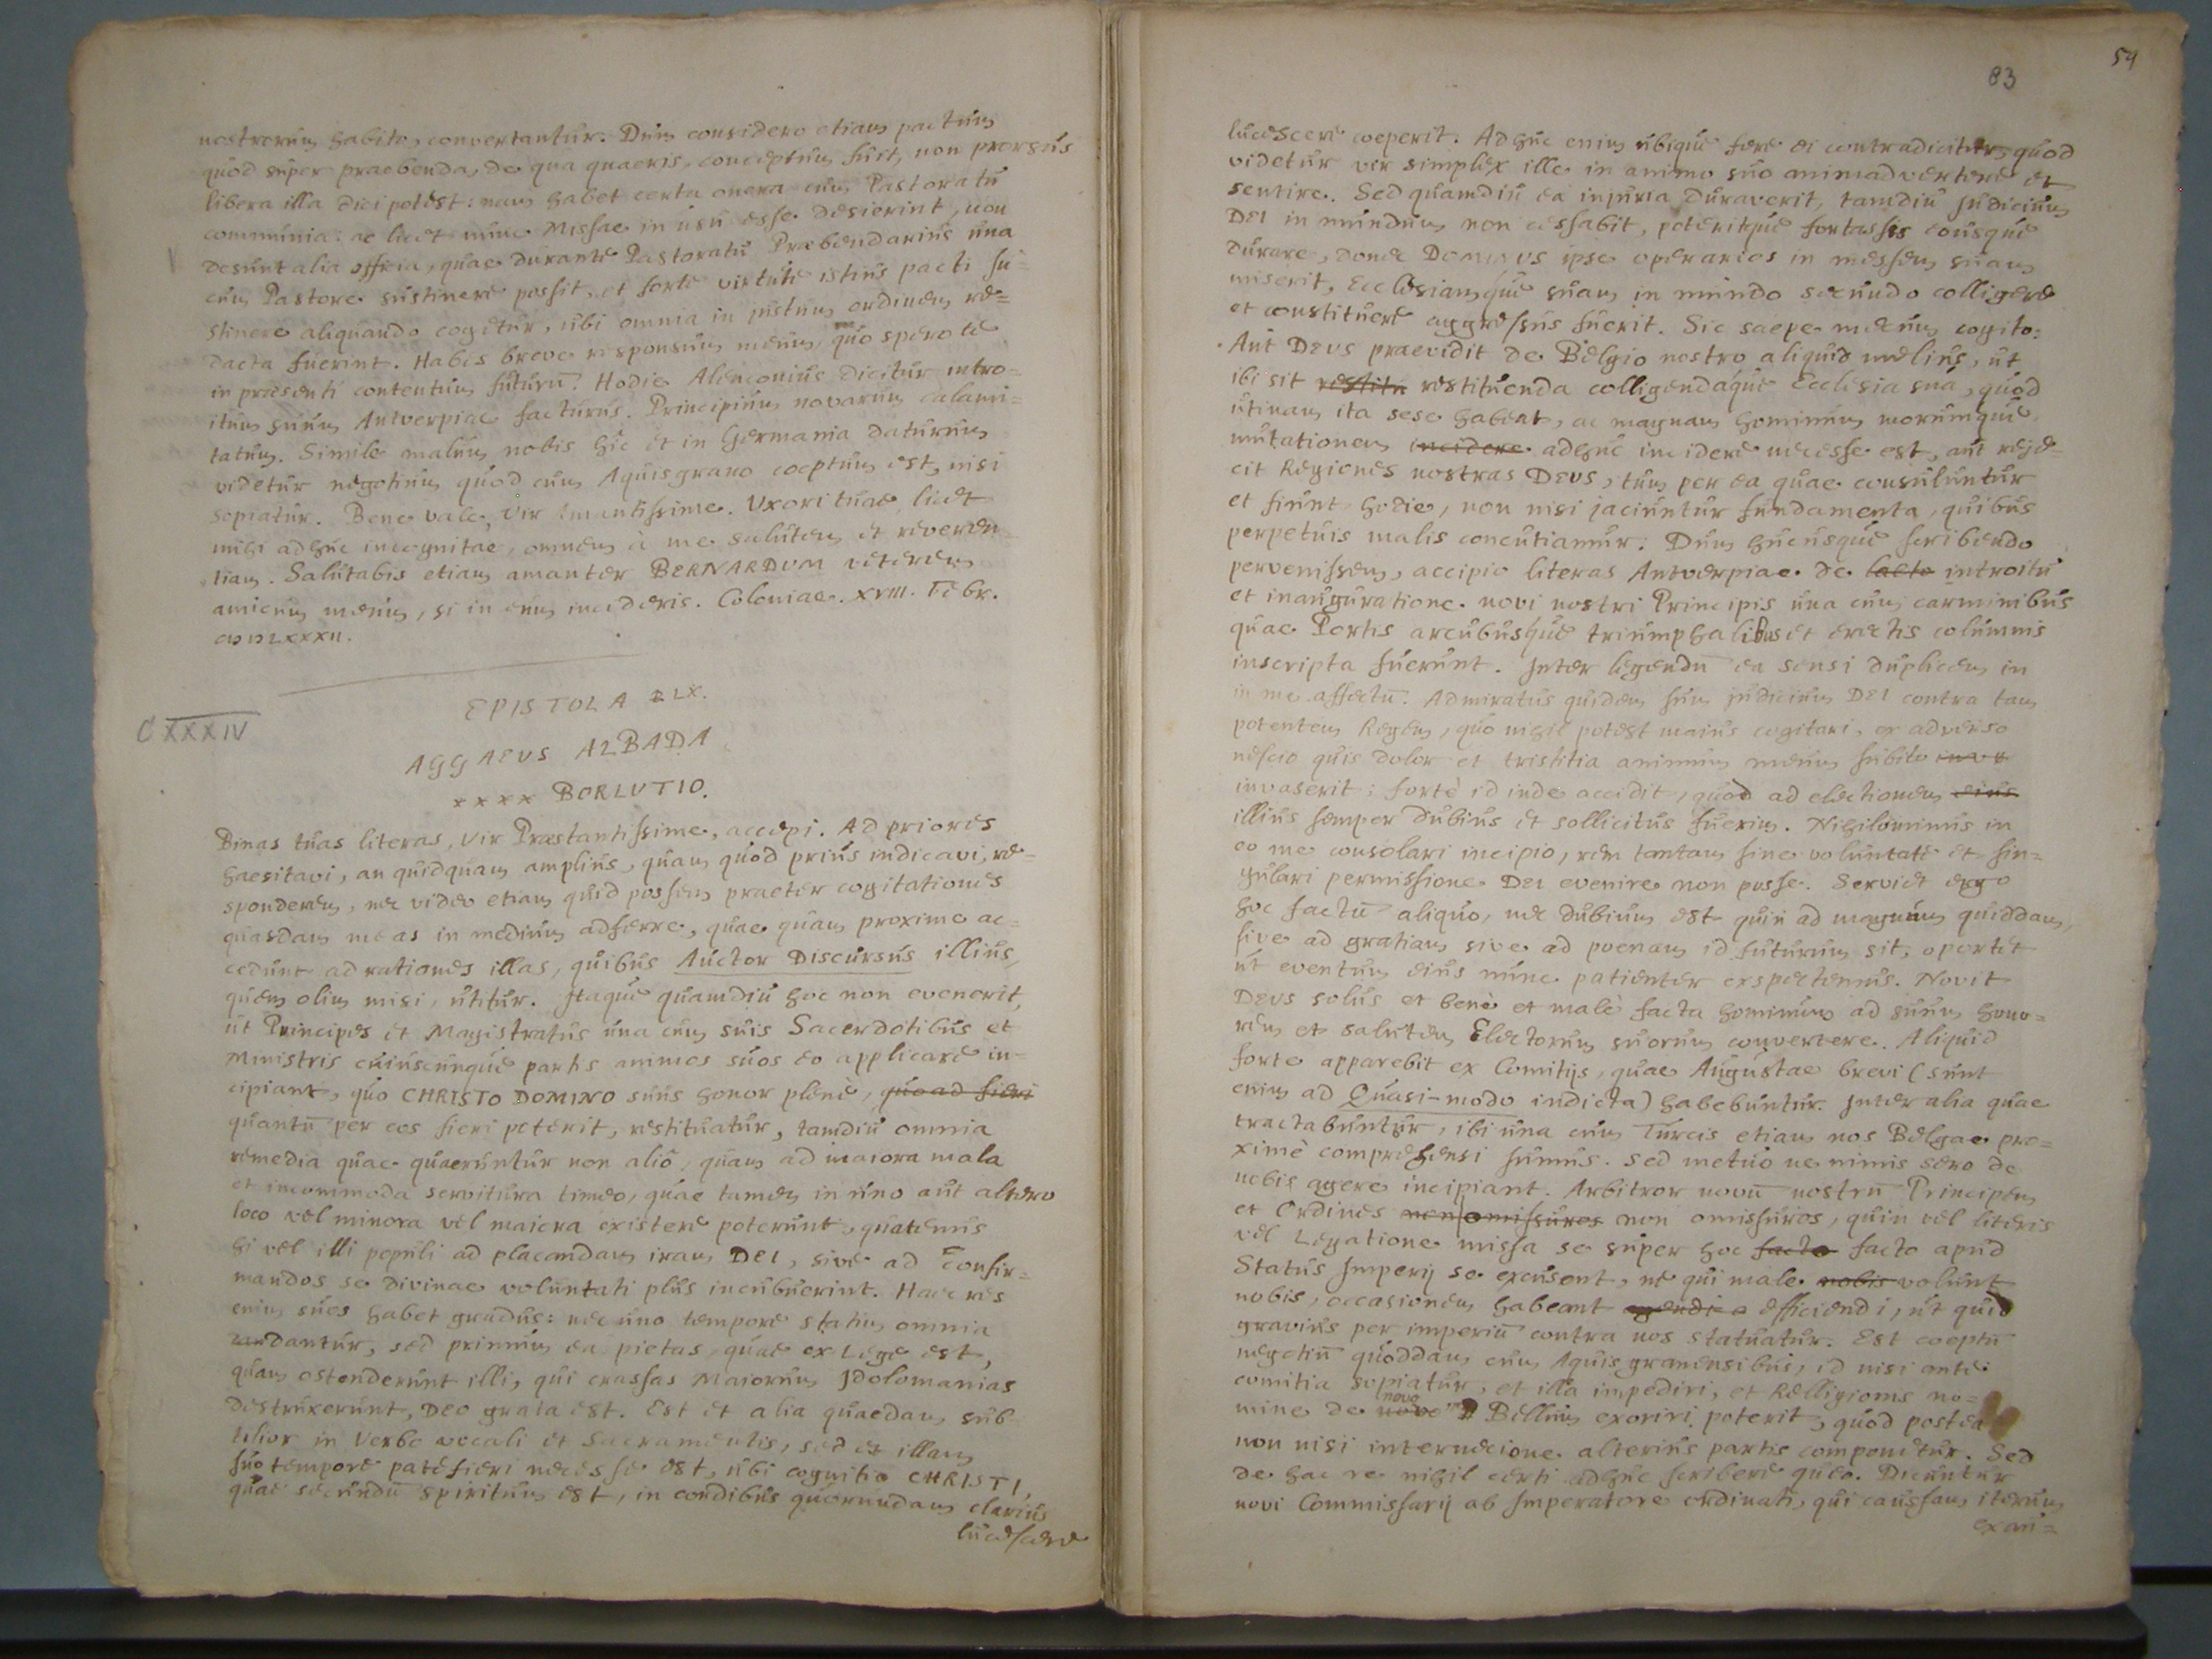 nostrorum habito, convertantur. Dum considero etiam pactum
quod super praebenda, de qua quaeris, conceptum fuit, non prorsus
libera illa dici potest: nam habet certa onera cum Pastoratu
communia: ac licet nunc Missae in usu esse desierint, non
desunt alia officia, quae durante Pastoratu Praebendarius una
cum Pastore sustinere possit, et forte virtute istius pacti su=
stinere aliquando cogetur, ubi omnia in justum ordinem re=
dacta fuerint. Habes breve responsum meum, quo spero te
in praesenti contentum futurū. Hodie Alenconius dicitur intro=
itum suum Antverpiae facturus. Principium novarum calami=
tatum. Simile malum nobis hic et in Germania daturum
videtur negotium quod cum Aquisgrano coeptum est, nisi
sopiatur. Bene vale, Vir Amantissime. Uxori tuae, licet
mihi adhuc incognitae, omnem à me salutem et reveren=
tiam. Salutabis etiam amanter BERNARDUM veterem
amicum meum, si in eum incideris. Coloniae. XVIII. Febr.
CIƆ IƆ LXXXII.
EPISTOLA LX.
CXXXIV
AGGAEUS ALBADA
x x x x BORLUTIO.
Binas tuas literas, Vir Praestantissime, accepi. Ad priores
haesitavi, an quidquam amplius, quam quod prius indicavi, re=
sponderem, nec video etiam quid possem praeter cogitationes
quasdam meas in medium adferre, quae quam proxime ac=
cedunt ad rationes illas, quibus Auctor Discursus illius,
quem olim misi, utitur. Itaque quamdiu hoc non evenerit,
ut Principes et Magistratus una cum suis Sacerdotibus et
Ministris cuiuscunque partis animos suos eo applicare in=
cipiant, quo CHRISTO DOMINO suus honor plenè, quoad fieri
quantū per eos fieri poterit, restituatur, tamdiu omnia
remedia quae quaeruntur non aliò, quam ad maiora mala
et incommoda servitura timeo, quae tamen in uno aut altero
loco vel minora vel maiora existere poterunt, quatenus
hi vel illi populi ad placandam iram DEI, sive ad confir=
mandos se divinae voluntati plus incubuerint. Haec res
enim suos habet gradus: nec uno tempore statim omnia
dantur, sed primum ea pietas, quae ex Lege est,
quam ostenderunt illi, qui crassas Maiorum Idolomanias
destruxerunt, DEO grata est. Est et alia quaedam sub=
tilior in Verbo vocali et Sacramentis, sed et illam
suo tempore patefieri necesse est, ubi cognitio CHRISTI,
quae secundū spiritum est, in cordibus quorundam clarius
lucescere
83
54
lucescere coeperit. Adhuc enim ubique fere ei contradicitur, quod
videtur vir simplex ille in animo suo animadvertere et
sentire. Sed quamdiu ea injuria duraverit, tamdiu judicium
DEI in mundum non cessabit, poteritque fortassis eousque
durare, donec DOMINUS ipse operarios in messem suam
miserit, Ecclesiamque suam in mundo secundo colligere
et constituere aggressus fuerit. Sic saepe mecum cogito:
Aut DEUS praevidit de Belgio nostro aliquid melius, ut
ibi sit restitu restituenda colligendaque Ecclesia sua, quod
utinam ita sese habeat, ac magnam hominum morumque
mutationem incidere adhuc incidere necesse est, aut reje=
cit Regiones nostras DEUS, tum per ea quae consuluntur
et fiunt hodie, non nisi jaciuntur fundamenta, quibus
perpetuis malis concutiamur. Dum hucusque scribendo
pervenissem, accipio literas Antverpiae de laeto introitu
et inauguratione novi nostri Principis una cum carminibus
quae Portis arcubusque triumphalibus et erectis columnis
inscripta fuerunt. Inter legendū ea sensi duplicem in
in me affectū. Admiratus quidem sum judicium DEI contra tam
potentem Regem, quo nihil potest maius cogitari, ex adverso
nescio quis dolor et tristitia animum meum subito inva
invaserit: fortè id inde accidit, quod ad electionem eius
illius semper dubius et sollicitus fuerim. Nihilominus in
eo me consolari incipio, rem tantam sine voluntate et sin=
gulari permissione DEI evenire non posse. Serviet ergo
hoc factū aliquo, nec dubium est quin ad magnum quiddam,
sive ad gratiam sive ad poenam id futurum sit, oportet
ut eventum eius nunc patienter exspectemus. Novit
DEUS solus et benè et malè facta hominum ad suum hono=
rem et salutem Electorum suorum convertere. Aliquid
forte apparebit ex Comitijs, quae Augustae brevi (sunt
enim ad Quasi-modo indicta) habebuntur. Inter alia quae
tractabuntur, ibi una cum Turcis etiam nos Belgae pro=
ximè comprehensi sumus. Sed metuo ne nimis sero de
nobis agere incipiant. Arbitror novū nostrū Principem
et Ordines non omissuros non omissuros, quin vel literis
vel Legatione missa se super hoc facto facto apud
Status Imperij se excusent, ne qui male nobis volunt
nobis, occasionem habeant agendi e efficiendi, ut quid
gravius per imperiū contra nos statuatur. Est coeptū
negotiū quoddam cum Aquisgranensibus, id nisi ante
comitia sopiatur, et illa impediri, et Relligionis no=
mine de novo novo Bellum exoriri poterit, quod postea
non nisi internecione alterius partis componetur. Sed
de hac re nihil certi adhuc scribere queo. Dicuntur
novi Commissarij ab Imperatore ordinati, qui caussam iterum
exam=